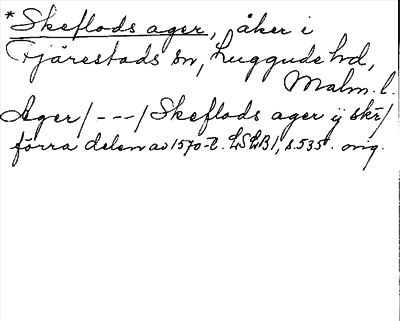 *Skeflods ager, åker i
Fjärestads sn, Luggude hd,
Malm. l.
Ager/ --- / Skeflods ager ÿ skr/
förra delen av 1570-t. LSLB1, s. 535. orig.